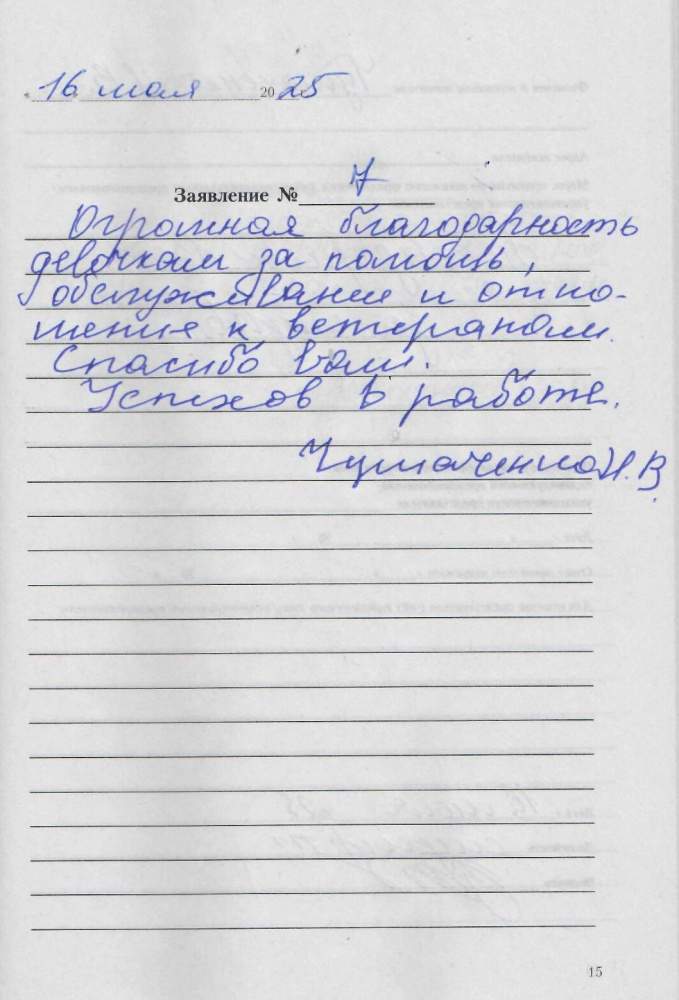 « 16 » мая 2025
Заявление № 7
Огромная благодарность
девочкам за помощь,
обслуживание и отно-
шение к ветеранам.
Спасибо Вам.
Успехов в работе.
Чумаченко Н.В.
15